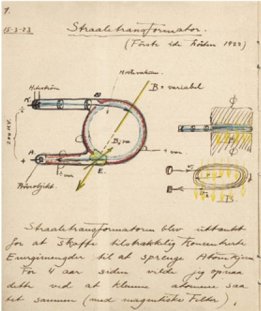 1.
15-3-23
Straaletransformator.
(Første ide høsten 1922)
Høivakuum.
B = variabel
H.
B, var
A.
E.
200 KV.
B
Straaletransformatoren blev uttænkt
for at skaffe tilstrækkelig koncentrerte
Energimengder til at sprenge Atomkjerne
For 4 aar siden vilde jeg opnaa
dette ved at klemme atomene saa
tæt sammen (med magnetiske Felter)